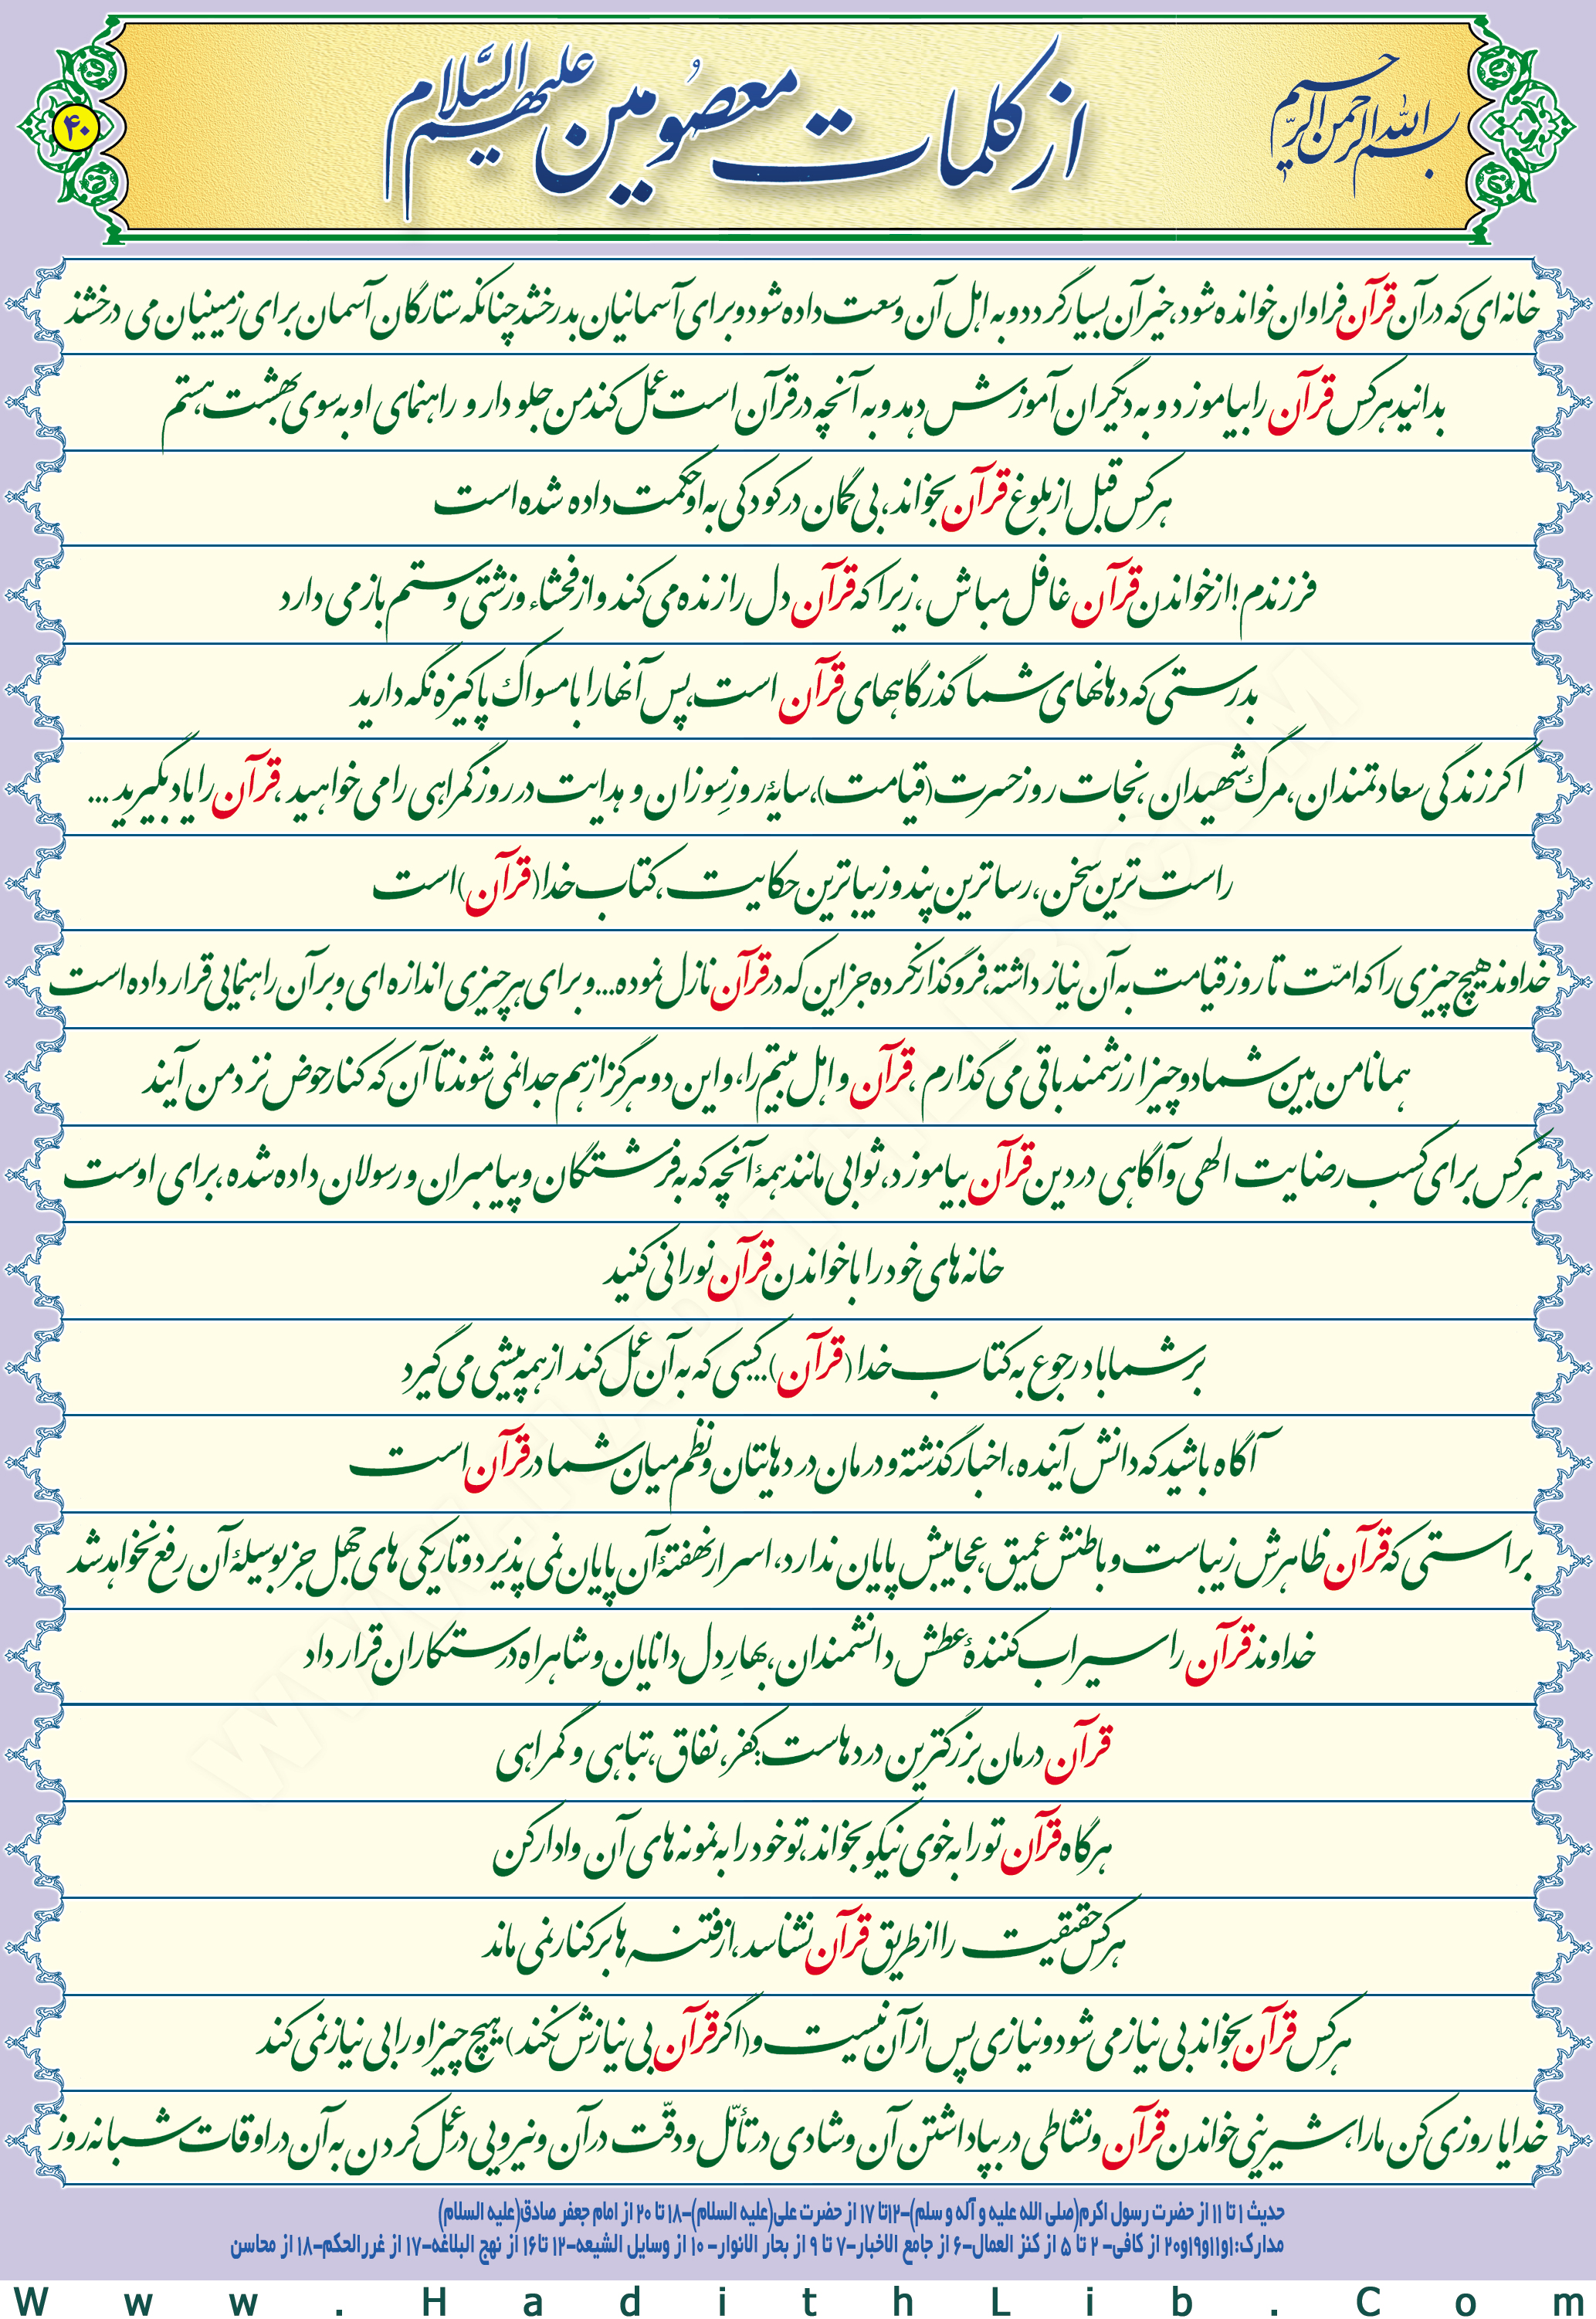 بسم الله الرحمن الرحیم
از کلمات معصومین علیهم السّلام
۴۰
خانه ای که در آن قرآن فراوان خوانده شود، خیر آن بسیار گردد و به اهل آن وسعت داده شود و برای آسمانیان بدرخشد چنانکه ستارگان آسمان برای زمینیان می درخشند
بدانید هر کس قرآن را بیاموزد و به دیگران آموزش دهد و به آنچه در قرآن است عمل کند من جلودار و راهنمای او به سوی بهشت هستم
هر کس قبل از بلوغ قرآن بخواند، بی گمان در کودکی به او حکمت داده شده است
فرزندم! از خواندن قرآن غافل مباش، زیرا که قرآن دل را زنده می کند و از فحشاء و زشتی و ستم باز می دارد
بدرستی که دهانهای شما گذرگاههای قرآن است، پس آنها را با مسواک پاکیزه نگه دارید
اگر زندگی سعادتمندان، مرگ شهیدان، نجات روز حسرت (قیامت)، سایهٔ روزِ سوزان و هدایت در روز گمراهی را می خواهید، قرآن را یاد بگیرید ...
راست ترین سخن، رساترین پند و زیباترین حکایت، کتاب خدا (قرآن) است
خداوند هیچ چیزی را که امّت تا روز قیامت به آن نیاز داشته، فروگذار نکرده جز این که در قرآن نازل نموده... و برای هر چیزی اندازه ای و بر آن راهنمایی قرار داده است
همانا من بین شما دو چیز ارزشمند باقی می گذارم، قرآن و اهل بیتم را، و این دو هرگز از هم جدا نمی شوند تا آن که کنار حوض نزد من آیند
هر کس برای کسب رضایت الهی و آگاهی در دین قرآن بیاموزد، ثوابی مانند همهٔ آنچه که به فرشتگان و پیامبران و رسولان داده شده، برای اوست
خانه های خود را با خواندن قرآن نورانی کنید
بر شما باد رجوع به کتاب خدا (قرآن)... کسی که به آن عمل کند از همه پیشی می گیرد
آگاه باشید که دانش آینده، اخبار گذشته و درمان دردهایتان و نظم میان شما در قرآن است
براستی که قرآن ظاهرش زیباست و باطنش عمیق، عجایبش پایان ندارد، اسرار نهفتهٔ آن پایان نمی پذیرد و تاریکی های جهل جز بوسیلهٔ آن رفع نخواهد شد
خداوند قرآن را سیراب کنندهٔ عطش دانشمندان، بهارِ دل دانایان و شاهراه درستکاران قرار داد
قرآن درمان بزرگترین دردهاست: کفر، نفاق، تباهی و گمراهی
هر گاه قرآن تو را به خوی نیکو بخواند، تو خود را به نمونه های آن وادار کن
هر کس حقیقیت را از طریق قرآن نشناسد، از فتنه ها بر کنار نمی ماند
هر کس قرآن بخواند بی نیاز می شود و نیازی پس از آن نیست و (اگر قرآن بی نیازش نکند) هیچ چیز او را بی نیاز نمی کند
خدایا روزی کن ما را، شیرینی خواندن قرآن و نشاطی در بپا داشتن آن و شادی در تأمّل و دقّت در آن و نیرویی در عمل کردن به آن در اوقات شبانه روز
حدیث ۱ تا ۱۱ از حضرت رسول اکرم(صلی الله علیه و آله و سلم)–۱۲تا ۱۷ از حضرت علی(علیه السلام)–۱۸ تا ۲۰ از امام جعفر صادق(علیه السلام)
مدارک:۱و۱۱و۱۹و۲۰ از کافی– ۲ تا ۵ از کنز العمال–۶ از جامع الاخبار–۷ تا ۹ از بحار الانوار– ۱۰ از وسایل الشیعه–۱۲ تا۱۶ از نهج البلاغه–۱۷ از غررالحکم–۱۸ از محاسن
Www.HadithLib.Com